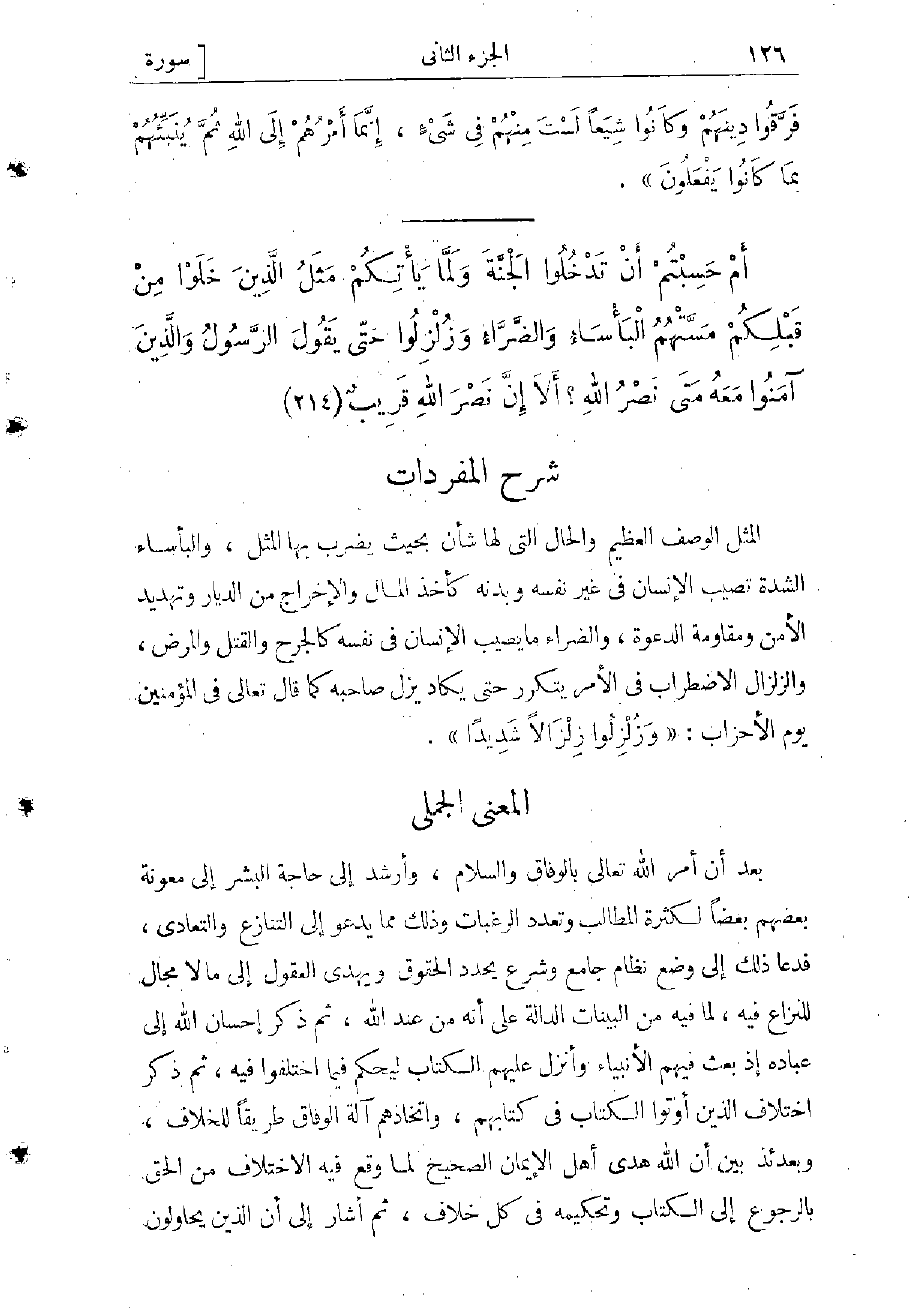 ١٢٦ الجزء الثانى [ سورة
فَرَّقُوا دِينَهُمْ وَكَانُوا شِيَعاً لَسْتَ مِنْهُمْ فِى شَىْءٍ ، إِنَّمَا أَمْرُهُمْ إِلَى اللهِ ثُمَّ يُنَبِّئُهُمْ
بِمَا كَانُوا يَفْعَلُونَ » .
أَمْ حَسِبْتُمْ أَنْ تَدْخُلُوا الْجَنَّةَ وَلَمَّا يَأْتِكُمْ مَثَلُ الَّذِينَ خَلَوْا مِنْ
قَبْلِكُمْ مَسَّتْهُمُ الْبَأْسَاءُ وَالضَّرَّاءُ وَزُلْزِلُوا حَتَّى يَقُولَ الرَّسُولُ وَالَّذِينَ
آمَنُوا مَعَهُ مَتَى نَصْرُ اللهِ ؟ أَلاَ إِنَّ نَصْرَ اللهِ قَرِيبٌ (٢١٤)
شرح المفردات
المثل الوصف العظيم والحال التى لها شأن بحيث يضرب بها المثل ، والبأساء
الشدة تصيب الإنسان فى غير نفسه وبدنه كأخذ المال والإخراج من الديار وتهديد
الأمن ومقاومة الدعوة ، والضراء ما يصيب الإنسان فى نفسه كالجرح والقتل والمرض ،
والزلزال الاضطراب فى الأمر يتكرر حتى يكاد يزل صاحبه كما قال تعالى فى المؤمنين
يوم الأحزاب : « وَزُلْزِلُوا زِلْزَالاً شَدِيدًا » .
المعنى الجملى
بعد أن أمر الله تعالى بالوفاق والسلام ، وأرشد إلى حاجة البشر إلى معونة
بعضهم بعضاً لكثرة المطالب وتعدد الرغبات وذلك مما يدعو إلى التنازع والتعادى ،
فدعا ذلك إلى وضع نظام جامع وشرع يحدد الحقوق ويهدى العقول إلى مالا مجال
للنزاع فيه ، لما فيه من البينات الدالة على أنه من عند الله ، ثم ذكر إحسان الله إلى
عباده إذ بعث فيهم الأنبياء وأنزل عليهم الكتاب ليحكم فيما اختلفوا فيه ، ثم ذكر
اختلاف الذين أوتوا الكتاب فى كتابهم ، واتخاذهم آلة الوفاق طريقاً للخلاف ،
وبعدئذ بين أن الله هدى أهل الإيمان الصحيح لما وقع فيه الاختلاف من الحق
بالرجوع إلى الكتاب وتحكيمه فى كل خلاف ، ثم أشار إلى أن الذين يحاولون